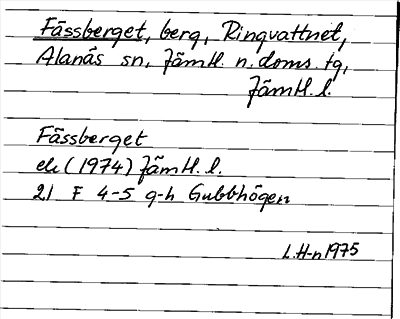 Fässberget, berg, Ringvattnet,
Alanäs sn, Jämtl. n. doms. tg,
Jämtl. l.
Fässberget
ek (1974) Jämtl. l.
21 F 4-5 g-h Gubbhögen
L.H-n 1975